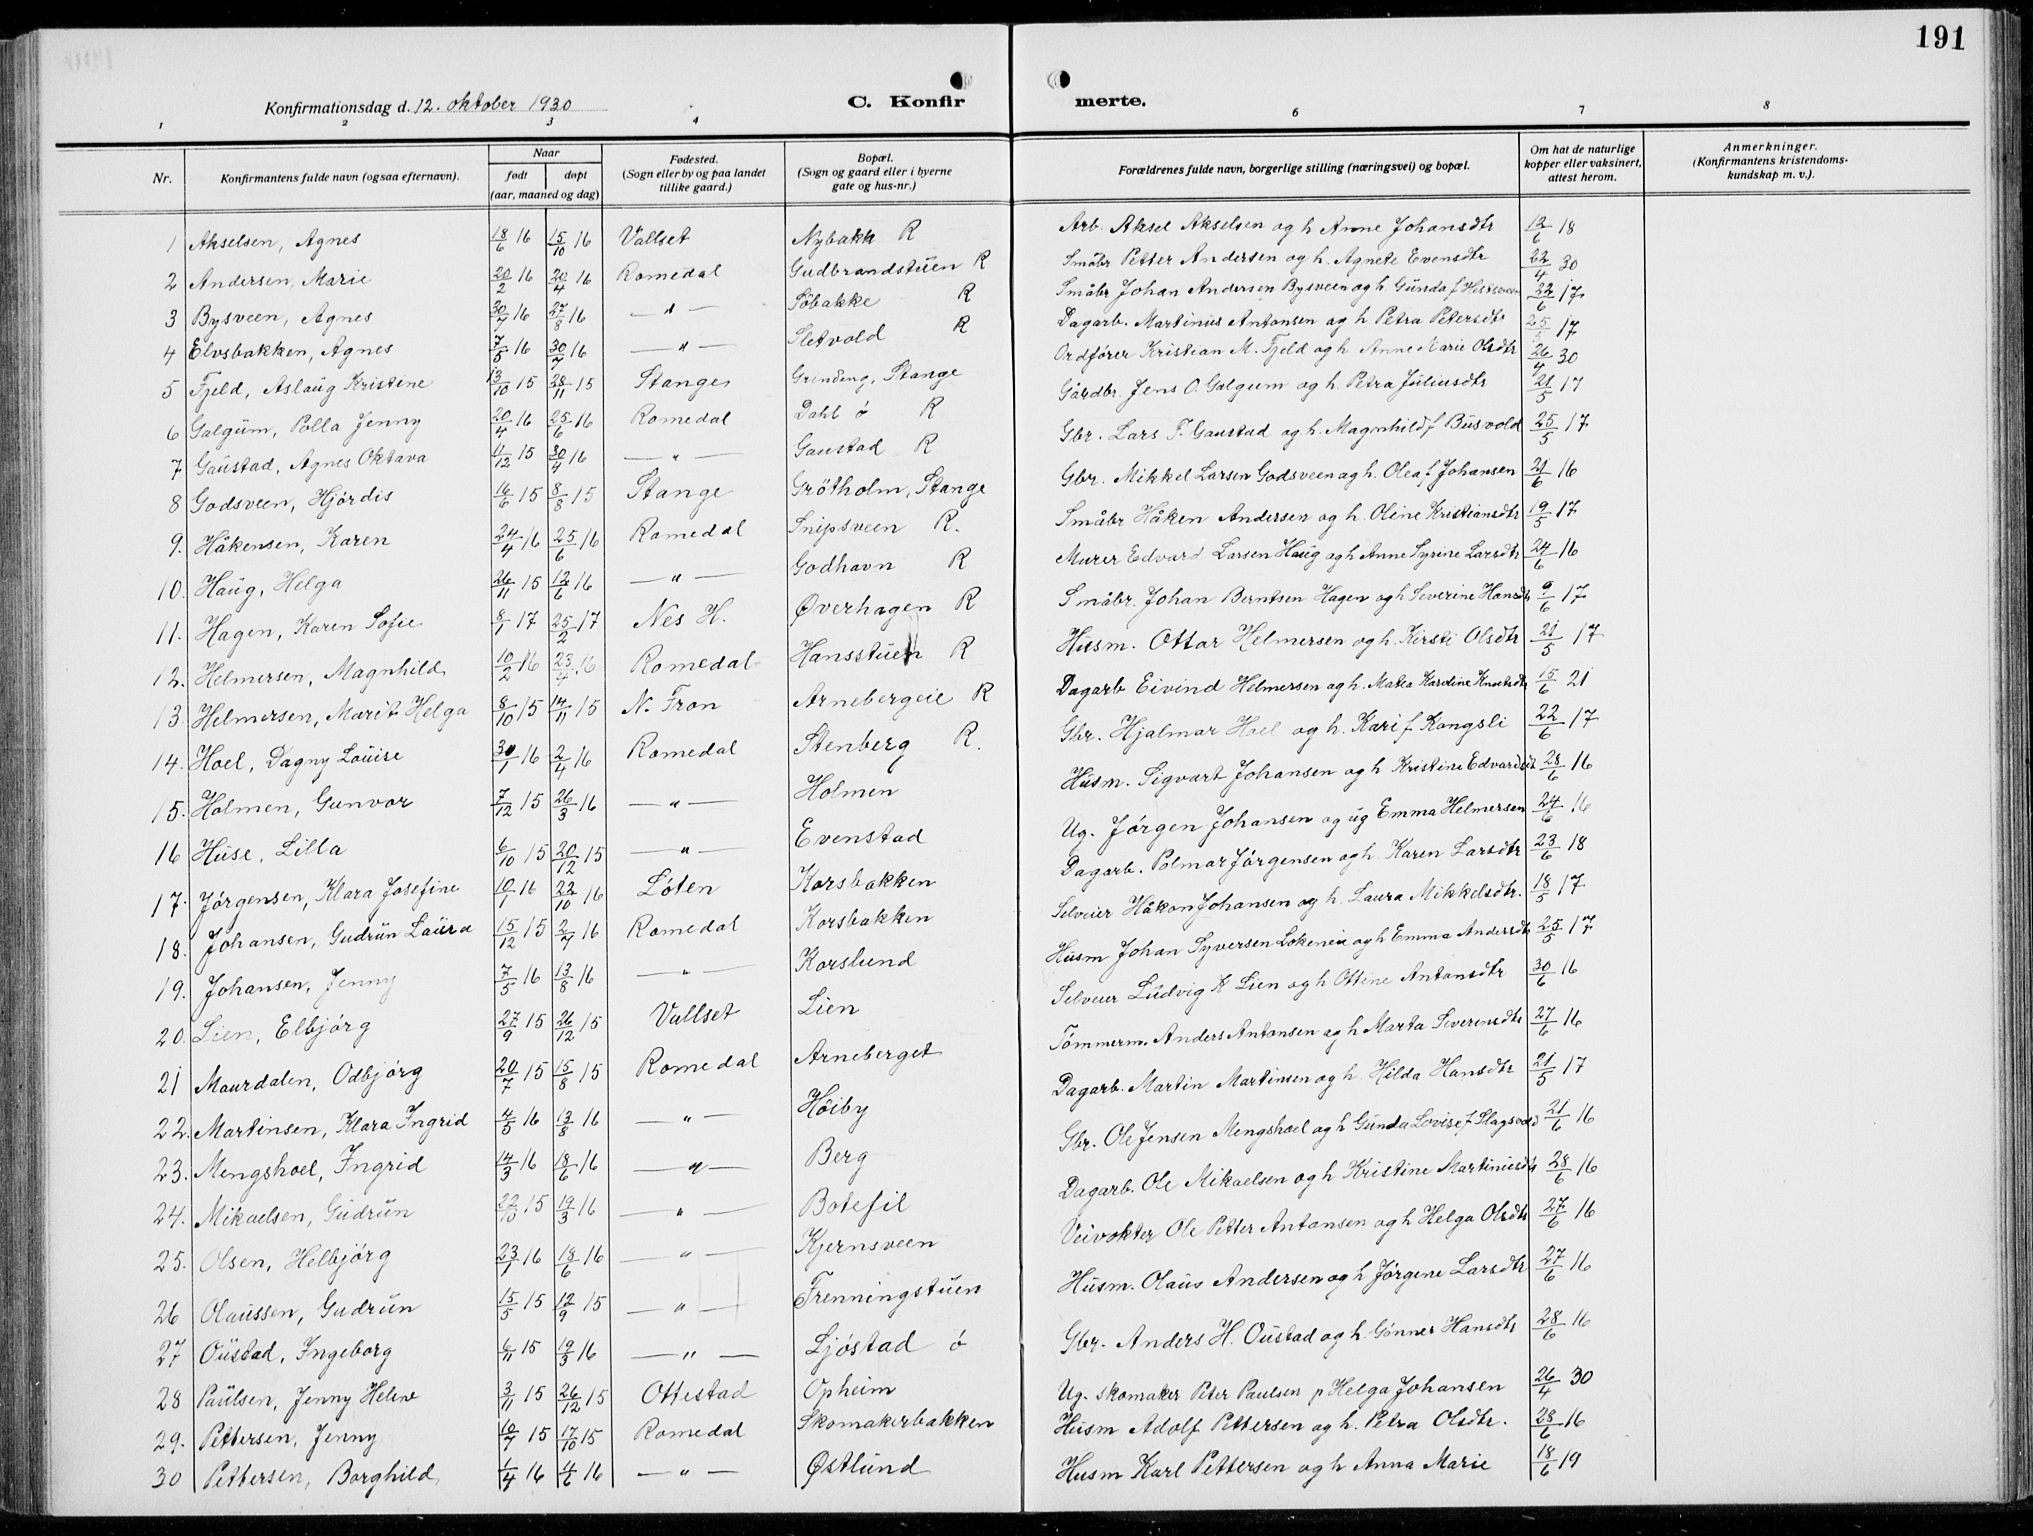 191
Konfirmationsdag d. 12. oktober 1930
C. Konfirmerte.
1 2 3 4 6 7 8
Nr. | Konfirmantens fulde navn (ogsaa efternavn). | Naar født | døpt (aar, maaned og dag) | Fødested. (Sogn eller by og paa landet tillike gaard.) | Bopæl. (Sogn og gaard eller i byerne gate og hus-nr.) | Forældrenes fulde navn, borgerlige stilling (næringsvei) og bopæl. | Om hat de naturlige kopper eller vaksinert, attest herom. | Anmerkninger. (Konfirmantens kristendoms-kundskap m. v.).
1 Akselsen, Agnes 18/6 16 15/10 16 Vallset Nybakk R Arb. Aksel Akselsen og h Anne Johansdtr 12/6 18
2 Andersen, Marie 20/2 16 20/4 16 Romedal Gudbrandstuen R Småbr Petter Andersen og h. Agnete Evensdtr 22/4 30
3 Bysveen, Agnes 30/7 16 27/8 16 —"— Söbakke R Småbr Johan Andersen Bysveen og h Gunda f 22/6 17
4 Elvsbakken, Agnes 7/5 16 30/7 16 —"— Sletvold R Dagarb. Martinius Antonsen og h Petra Petersdtr 17
5 Fjeld, Aslaug Kristine 13/10 15 28/11 15 Stange Grindeng, Stange Ordfører Kristian M. Fjeld og h Anne Marie Olsdtr 26/4 30
6 Galgum, Polla Jenny 20/4 16 25/6 16 Romedal Dahl ö R Gårdbr. Jens O. Galgum og h. Petra Juliusdtr 21/5 17
7 Gaustad, Agnes Oktava 11/12 15 30/4 16 —"— Gaustad R Gbr. Lars T. Gaustad og h. Magnhild f Busvold 25/5 17
8 Godsveen, Hjördis 16/6 15 8/8 15 Stange Grötholm, Stange Gbr. Mikkel Larsen Godsveen og h. Olea f Johansen 21/6 16
9. Håkensen, Karen 24/4 16 25/6 16 Romedal Snipsveen R. Småbr Håken Andersen og h. Oline Kristiansdtr 19/5 17
10. Haug, Helga 26/11 15 12/6 16 —"— Godhavn R Murer Edvard Larsen Haug og h Anne Syrine Larsdtr 24/6 16
11. Hagen, Karen Sofie 8/1 17 25/2 17 Nes H. Øverhagen R Småbr. Johan Berntsen Hagen og h Severine Hansdtr 9/6 17
12. Helmersen, Magnhild 10/2 16 23/4 16 Romedal Hansstuen R Husm. Ottar Helmersen og h. Kirsti Olsdtr 21/5 17
13 Helmersen, Marit Helga 8/10 15 14/11 15 N. Fron Arnebergeie R Dagarb Eivind Helmersen og h. Matea Karoline Knutsdtr 15/6 21
14. Hoel, Dagny Louise 30/1 16 2/4 16 Romedal Stenberg R. Gbr. Hjalmar Hoel og h. Kari f Kongsli 22/6 17
15. Holmen, Gunvor 7/12 15 26/3 16 —"— Holmen Husm. Sigvart Johansen og h Kristine Edvardsdt 28/6 16
16 Huse, Lilla 6/10 15 20/12 15 —"— Evenstad Ug. Jörgen Johansen og ug Emma Helmersen 24/6 16
17. Jørgensen, Klara Josefine 10/1 16 22/10 16 Löten Korsbakken Dagarb. Polmar Jörgensen og h. Karen Larsdtr 23/6 18
18. Johansen, Gudrun Laura 15/12 15 2/7 16 Romedal Korsbakken Selveier Håkon Johansen og h. Laura Mikkelsdtr. 18/5 17
19. Johansen, Jenny 7/5 16 13/8 16 —"— Korslund Husm Johan Syversen Lokenia og h Emma Andersdtr 25/5 17
20. Lien, Elbjörg 27/9 15 26/12 15 Vallset Lien Selveier Ludvig K Lien og h Ottine Antonsdtr 30/6 16
21 Maurdalen, Odbjörg 20/7 15 15/8 15 Romedal Arneberget Tömmerm. Anders Antonsen og h Marta Severinsdtr 27/6 16
22. Martinsen, Klara Ingrid 4/5 16 13/8 16 —"— Höiby Dagarb. Martin Martinsen og h. Hilda Hansdtr 21/5 17
23. Mengshoel, Ingrid 14/3 16 18/6 16 —"— Berg Gbr. Ole Jensen Mengshoel og h Gunda Lovise f Slagsvold 21/6 16
24. Mikaelsen, Gudrun 22/10 15 19/3 16 —"— Botefil Dagarb. Ole Mikaelsen og h Kristine Martiniusdtr 28/6 16
25. Olsen, Helbjörg 23/1 16 18/6 16 —"— Kjernsveen Veivokter Ole Petter Antonsen og h Helga Olsdtr 27/6 16
26 Olaussen, Gudrun 15/5 15 12/9 15 —"— Frenningstuen Husm. Olaus Andersen og h Jörgene Larsdtr 27/6 16
27 Oustad, Ingeborg 6/11 15 19/3 16 —"— Ljöstad ö Gbr. Anders H. Oustad og h. Gönner Hansdtr 28/6 16
28 Paulsen, Jenny Helene 3/11 15 26/12 15 Ottestad Opheim Ug. skomaker Peter Paulsen p Helga Johansen 26/4 30
29. Pettersen, Jenny 10/7 15 17/10 15 Romedal Skomakerbakken Husm Adolf Pettersen og h. Petra Olsdtr. 28/6 16
30 Pettersen, Borghild 1/4 16 4/6 16 —"— Østlund Husm Karl Pettersen og h Anna Marie 18/6 19